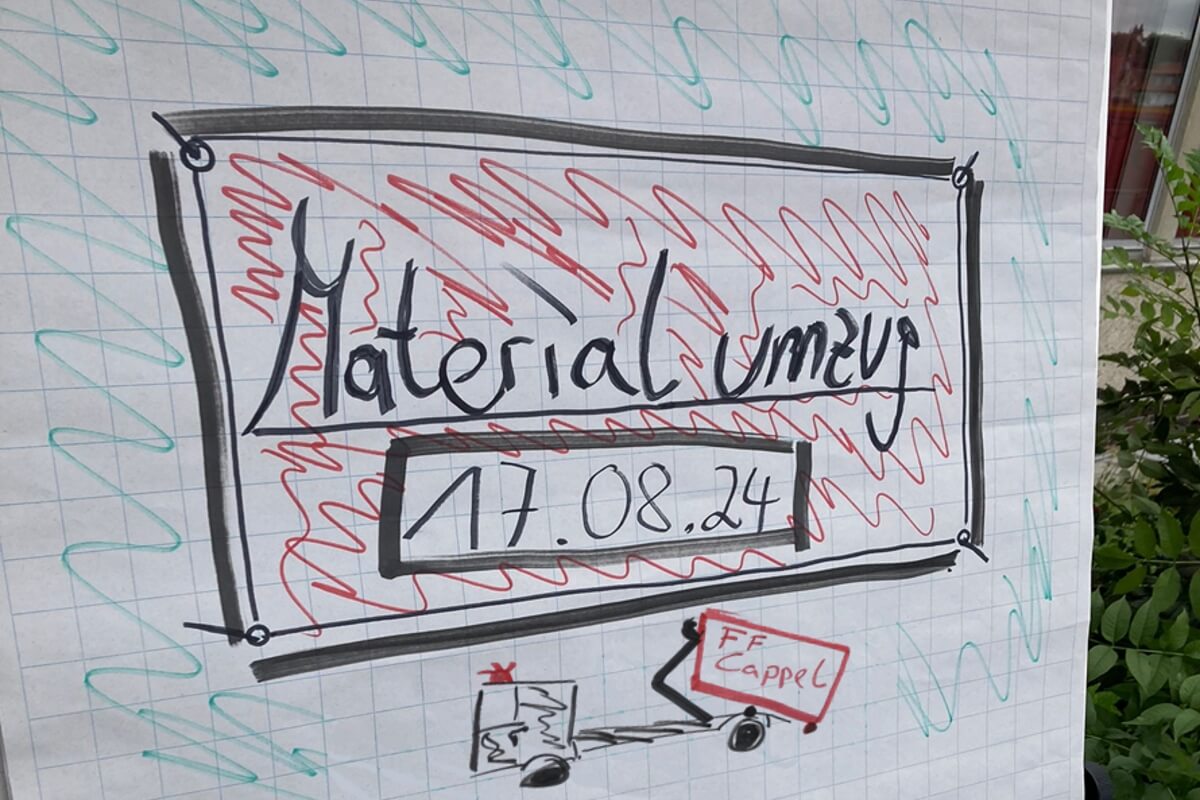 Material umzug
17.08.24
FF
Cappel